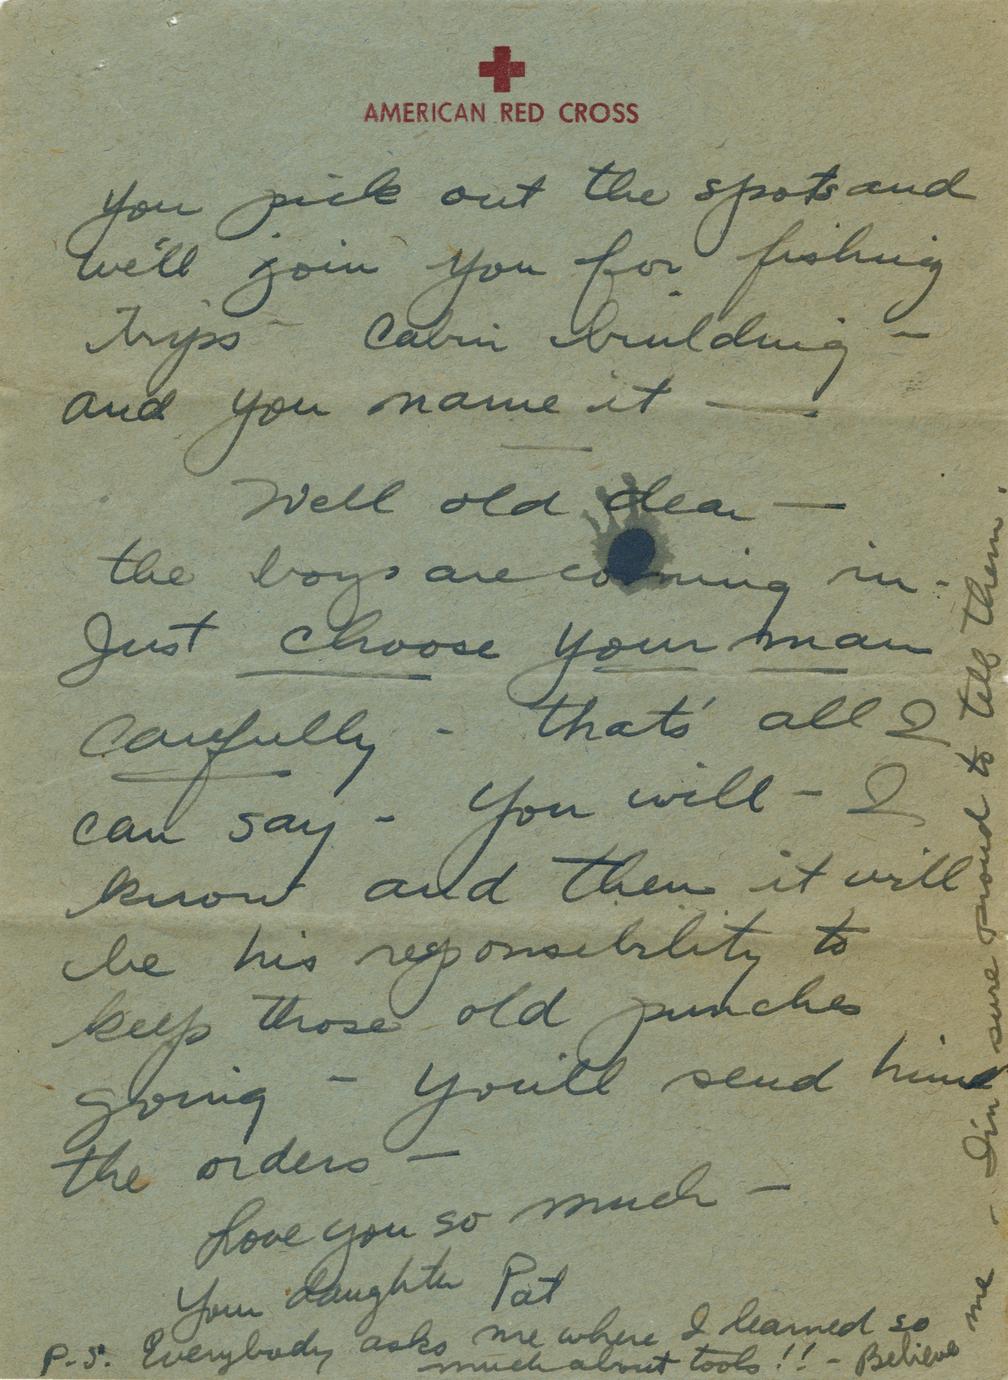 AMERICAN RED CROSS
You pick out the spots and
we'll join you for fishing
trips - Cabin building -
and you name it —
Well old dear —
the boys are coming in -
Just choose your man
carefully - that's all I
can say - You will - I
know and then it will
be his responsibility to
keep those old punches
going - You'll send him
the orders -
Love you so much -
Your daughter Pat
P.S. Everybody asks me where I learned so
much about tools!! - Believe
me - I'm sure proud to tell them.